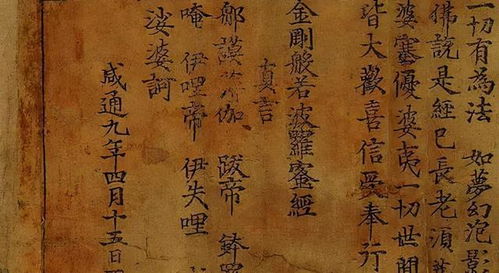 一切有為法　如夢幻泡影
佛說是經已長老須
婆塞優婆夷一切世間
皆大歡喜信受奉行
金剛般若波羅蜜經
真言
郍謨薄伽　跋帝　鉢
唵　伊哩帝　伊失哩
娑婆訶
咸通九年四月十五日